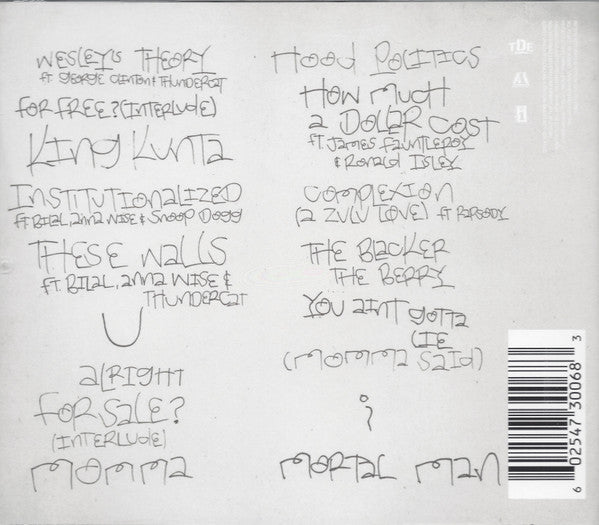 WESLEY'S THEORY
FT GEORGE CLINTON & THUNDERCAT
FOR FREE? (INTERLUDE)
KING KUNTA
INSTITUTIONALIZED
FT BILAL, ANNA WISE & SNOOP DOGG
THESE WALLS
FT. BILAL, ANNA WISE &
THUNDERCAT
U
ALRIGHT
FOR SALE?
(INTERLUDE)
MOMMA
HOOD POLITICS
HOW MUCH
A DOLLAR COST
FT. JAMES FAUNTLEROY
& RONALD ISLEY
COMPLEXION
(A ZULU LOVE) FT RAPSODY
THE BLACKER
THE BERRY
YOU AINT GOTTA
LIE
(MOMMA SAID)
i
MORTAL MAN
TDE
6 02547 30068 3